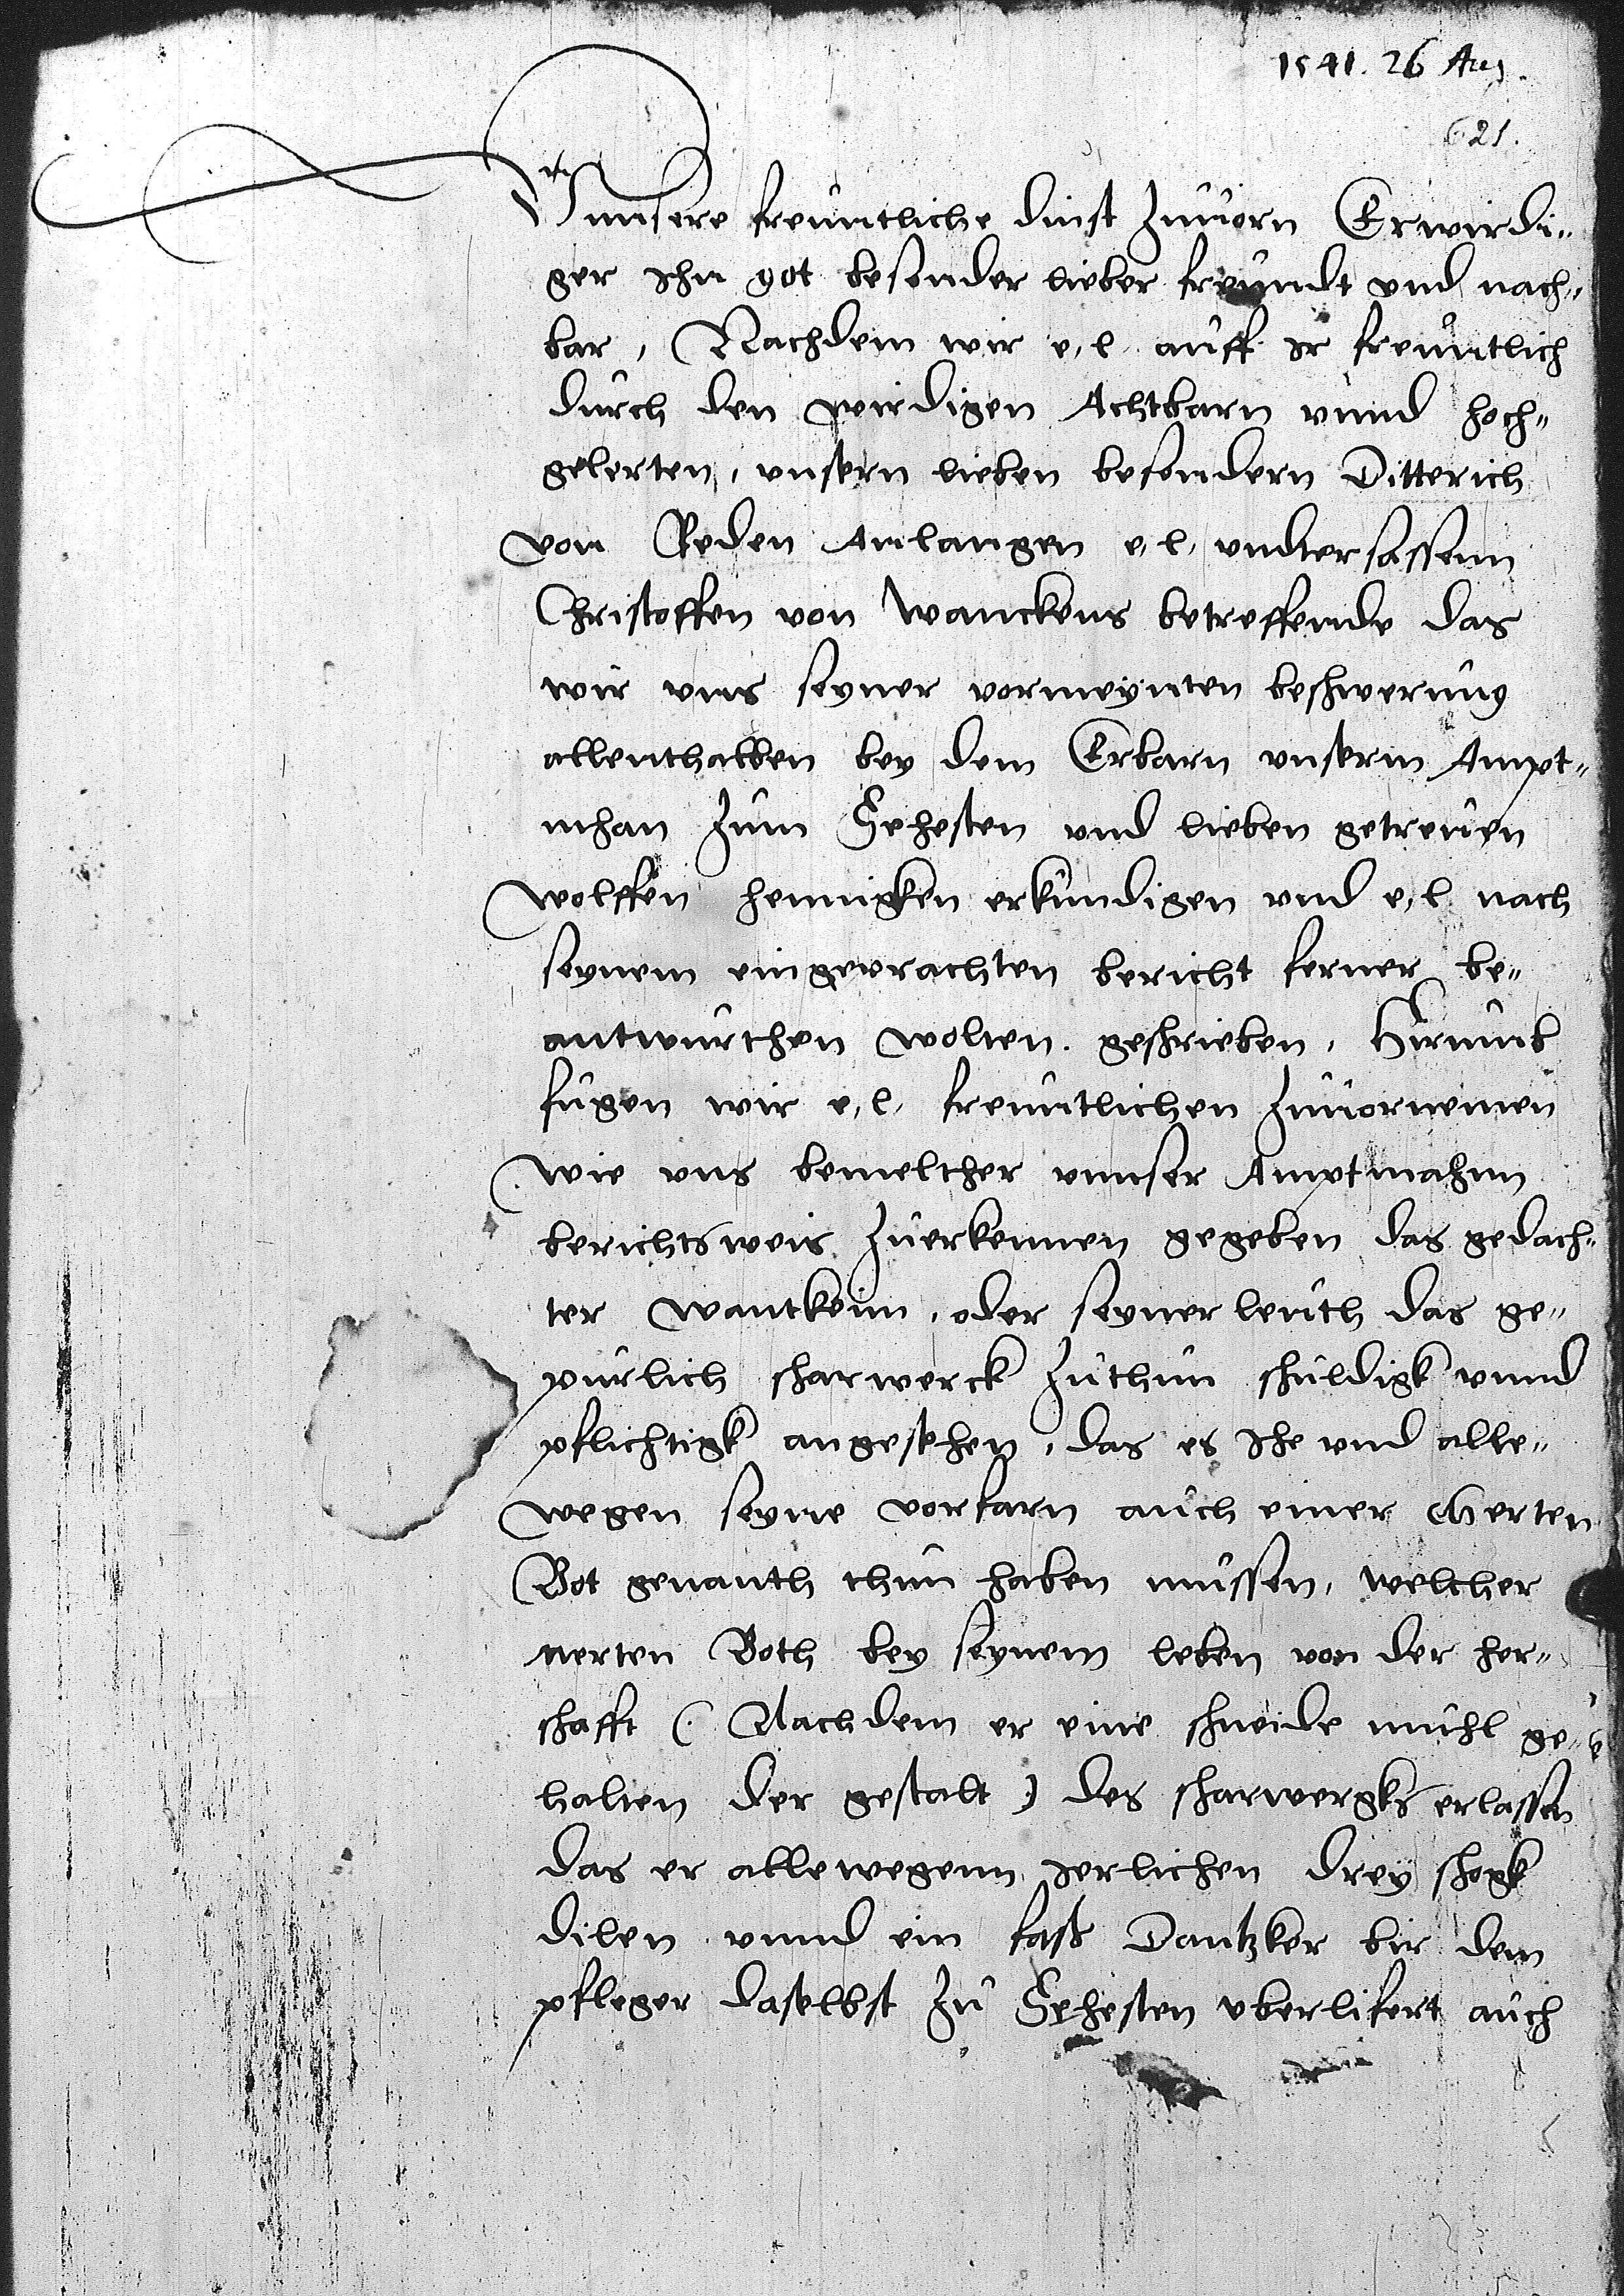 1541. 26 Aug.
621.
Vnnsere freuntliche dinst zuuorn Erwirdi-
ger Ihn got besonder lieber freundt vnd nach-
bar, Nachdem wir e, l, auff Ir freuntlich
durch den wirdigen Achtbarn vnnd hoch-
gelerten, vnsern lieben besondern Ditterich
von Reden Anlangen e, l, vndtersassenn
Christoffen von Wanckens betreffende das
wir vns seyner vormeynten beschwerung
allenthalben bey dem Erbarn vnserm Ampt-
mhan zum Sehesten vnd lieben getreuen
wolffen hennigken erkundigen vnd e, l nach
seynem eingeprachten bericht ferner be-
antwurthen wolten. geschrieben, Hirumb
fugen wir e, l, freuntlichen zuuornemen
wie vns bemelther vnnser Amptmahnn
berichtsweis zuerkennen gegeben das gedach-
ter Wanckenn, oder seyner leuth das ge-
purlich scharwerck zuthun schuldigk vnnd
pflichtigk angesehen, das es Ihe vnd alle-
wegen seyne vorfarn auch einer Merten
Bot genanth thun haben mussen, welcher
Merten Both bey seynem leben von der her-
schafft (: Nachdem er eine schneide muhl ge-
halten der gestalt :) des scharwergks erlassen
das er allewegenn Jerlichen drey schogk
dilen vnnd ein fass Dantzker bir dem
pfleger daselbst zu Sehesten vberlifert auch